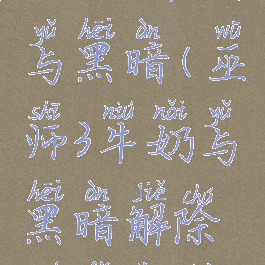 yǔ hēi àn wū
与黑暗(巫
shī niú nǎi yǔ
师3牛奶与
hēi àn jiě chú
黑暗解除